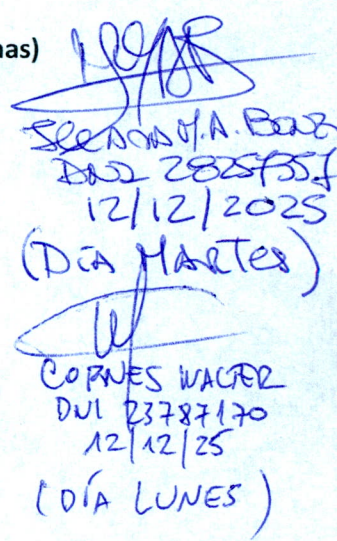 nas)
M.A.
DNI
12/12/2025
(DíA MARTES)
CORNES WALTER
DNI 23787170
12/12/25
(DÍA LUNES)